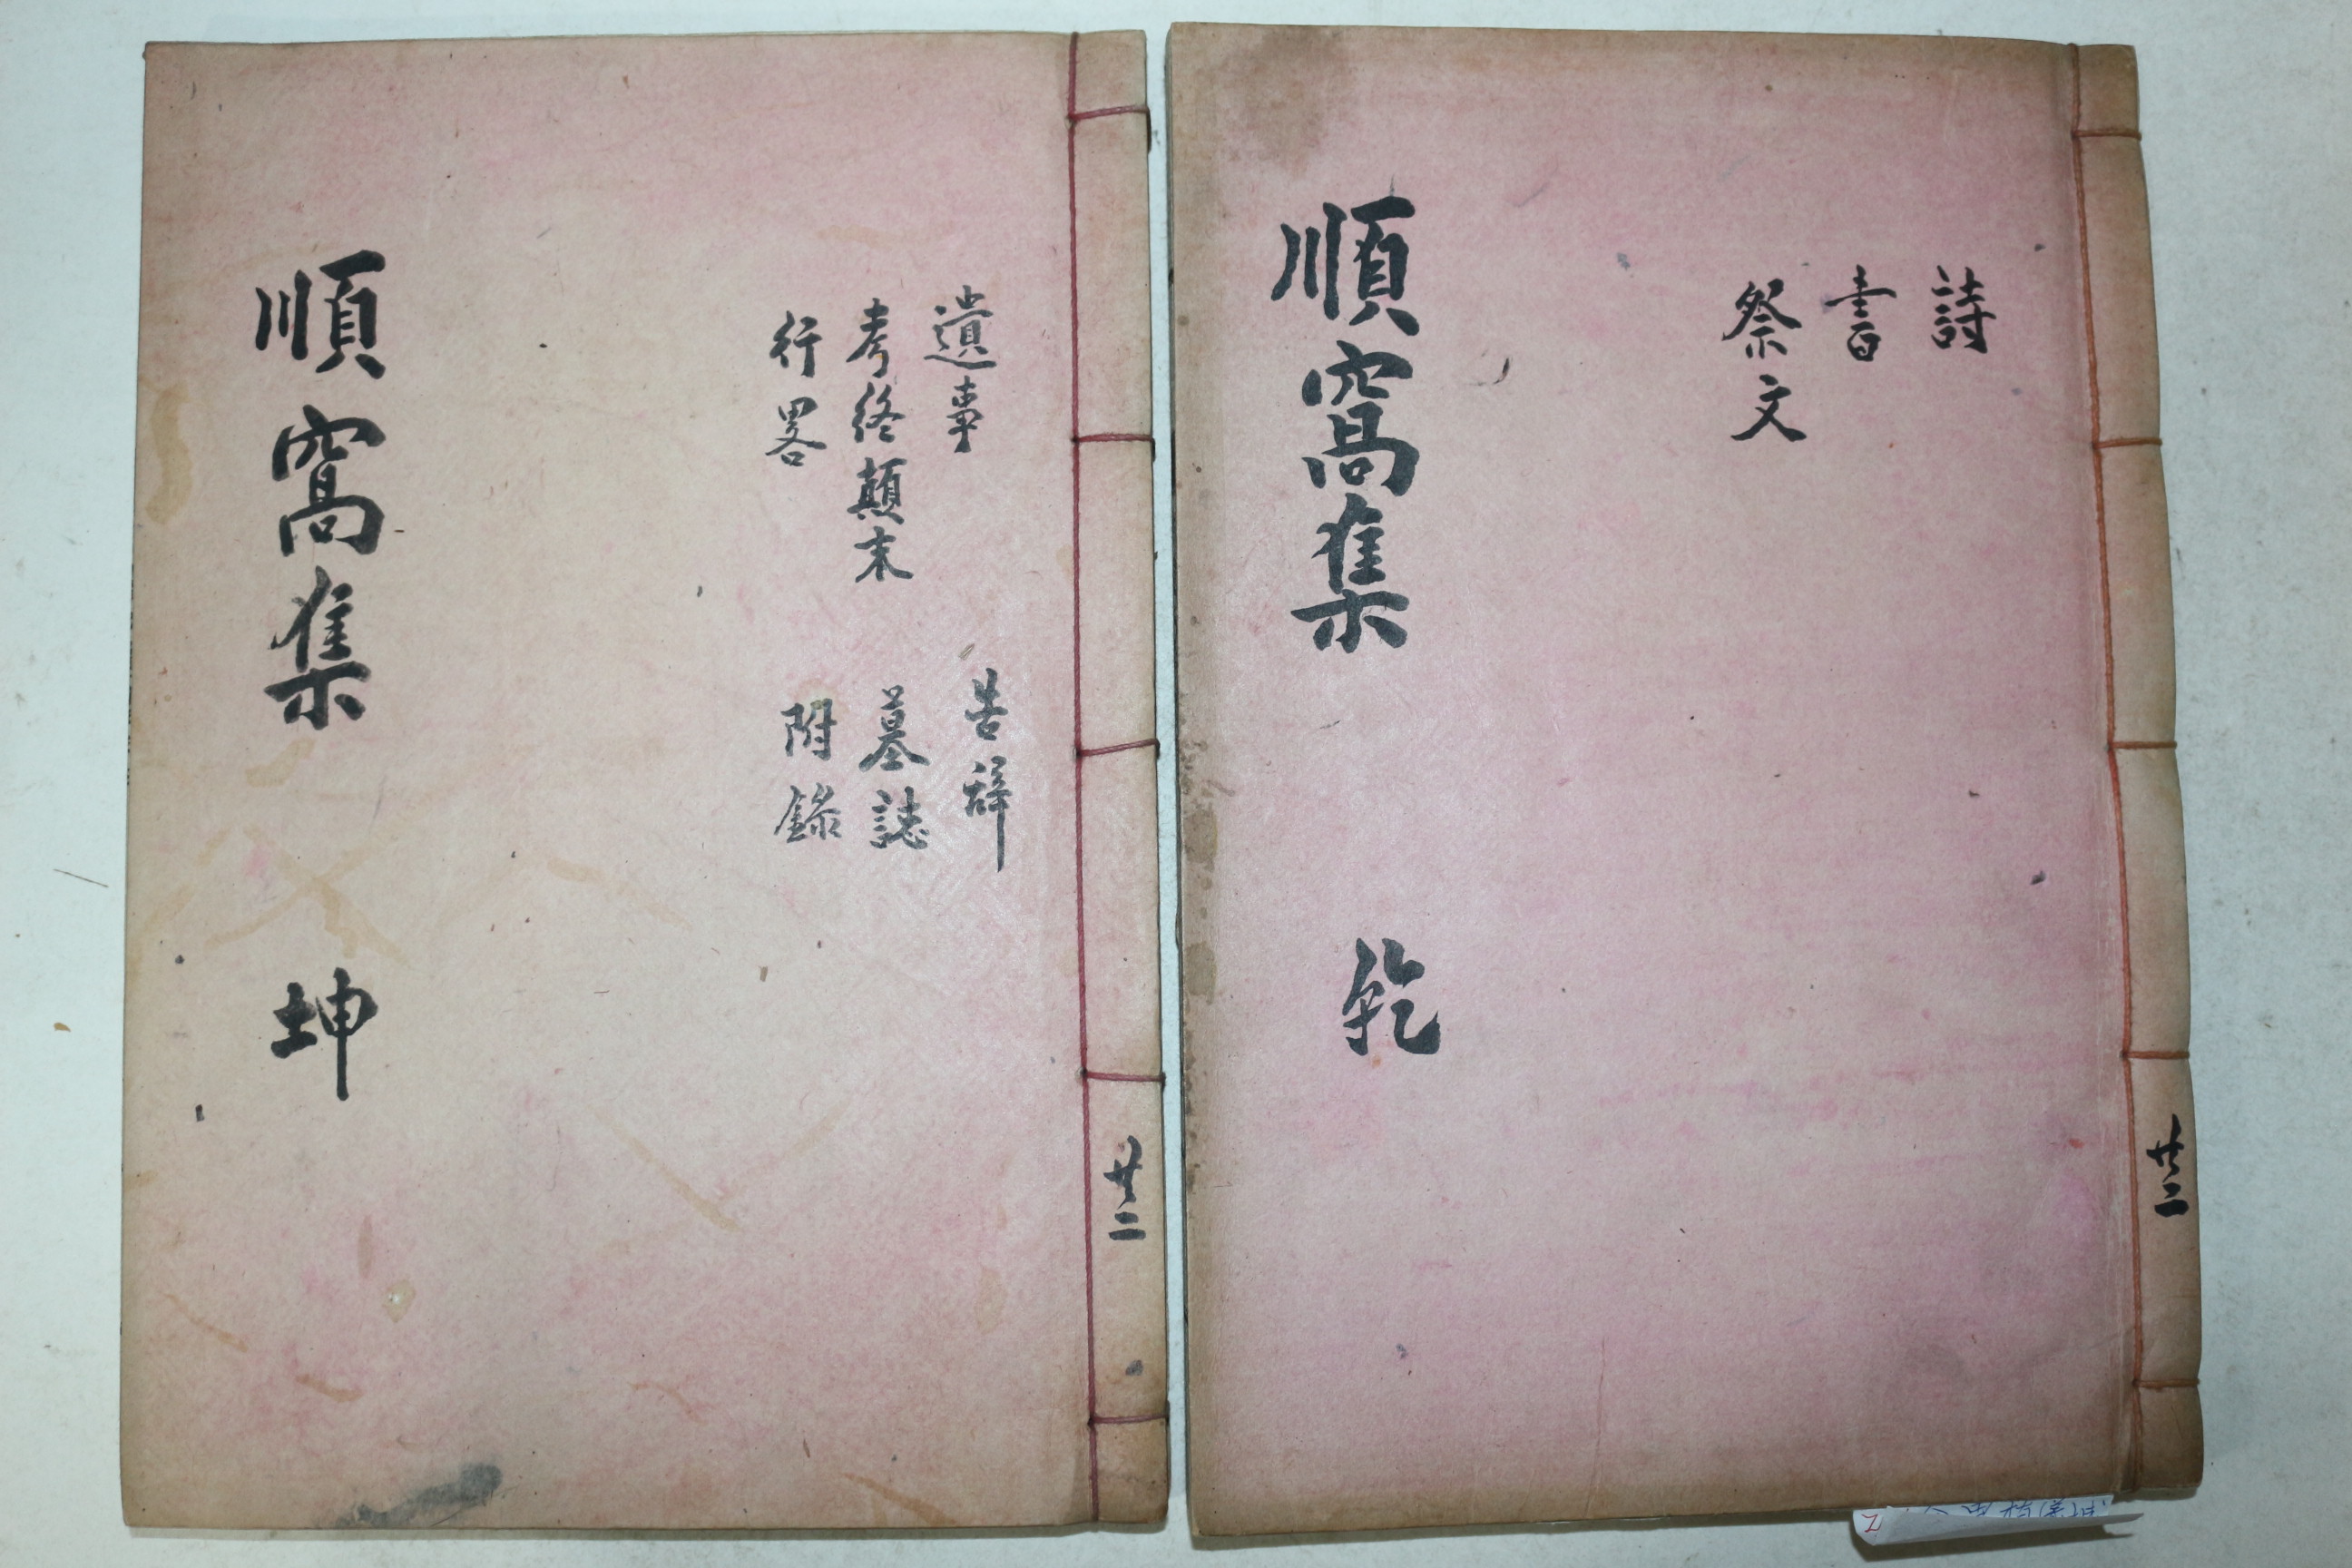 詩
書
祭文
順窩集 乾
共二
遺事 告辭
考終顛末 墓誌
行畧 附錄
順窩集 坤
共二